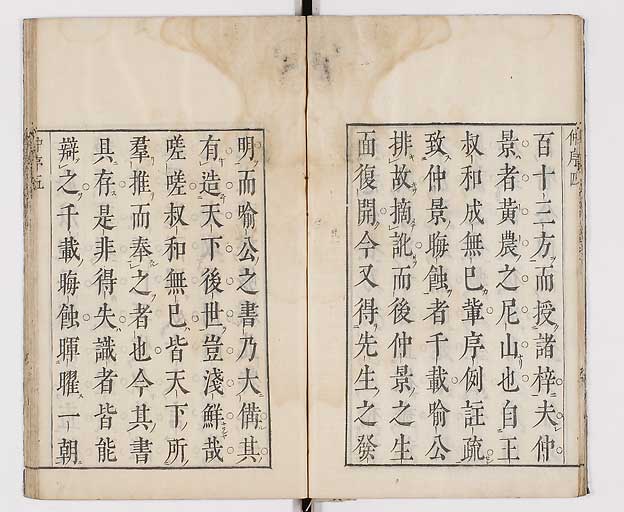 百十三方而授諸梓夫仲
景者黄農之尼山也自王
叔和成無已軰序例註疏
致仲景晦蝕者千載喻公
排故摘訛而後仲景之生
面復開今又得先生之發
明而喻公之書乃大備其
有造天下後世豈淺鮮哉
嗟嗟叔和無已皆天下所
羣推而奉之者也今其書
具存是非得失識者皆能
辯之千載晦蝕暉曜一朝